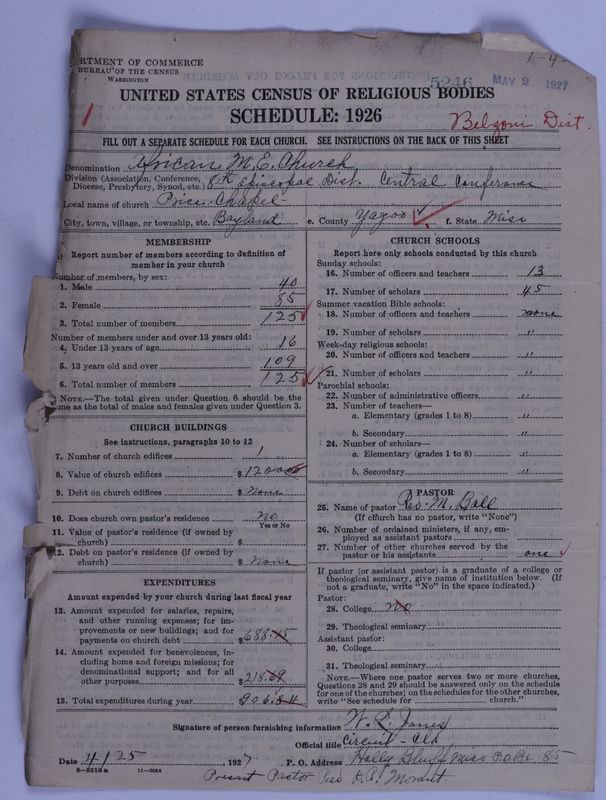 RTMENT OF COMMERCE
BUREAU OF THE CENSUS
WASHINGTON
1-4-
5246 MAY 2 1927
UNITED STATES CENSUS OF RELIGIOUS BODIES
SCHEDULE: 1926
Belzoni Dist.
FILL OUT A SEPARATE SCHEDULE FOR EACH CHURCH. SEE INSTRUCTIONS ON THE BACK OF THIS SHEET
Denomination African M. E. Church
Division (Association, Conference, Diocese, Presbytery, Synod, etc.) 8th Episcopal Dist. Central Conference
Local name of church Price Chapel
City, town, village, or township, etc. Bayland e. County Yazoo f. State Miss
MEMBERSHIP
Report number of members according to definition of
member in your church
Number of members, by sex:
1. Male 40
2. Female 85
3. Total number of members 125
Number of members under and over 13 years old:
4. Under 13 years of age 16
5. 13 years old and over 109
6. Total number of members 125
NOTE.—The total given under Question 6 should be the
me as the total of males and females given under Question 3.
CHURCH BUILDINGS
See instructions, paragraphs 10 to 12
7. Number of church edifices 1
8. Value of church edifices $ 1200
9. Debt on church edifices $ None
10. Does church own pastor's residence No
Yes or No
11. Value of pastor's residence (if owned by
church) $
12. Debt on pastor's residence (if owned by
church) $ None
EXPENDITURES
Amount expended by your church during last fiscal year
13. Amount expended for salaries, repairs,
and other running expenses; for im-
provements or new buildings; and for
payments on church debt $ 688.15
14. Amount expended for benevolences, in-
cluding home and foreign missions; for
denominational support; and for all
other purposes $ 218.69
15. Total expenditures during year 906.84
CHURCH SCHOOLS
Report here only schools conducted by this church
Sunday schools:
16. Number of officers and teachers 13
17. Number of scholars 45
Summer vacation Bible schools:
18. Number of officers and teachers none
19. Number of scholars "
Week-day religious schools:
20. Number of officers and teachers "
21. Number of scholars "
Parochial schools:
22. Number of administrative officers "
23. Number of teachers—
a. Elementary (grades 1 to 8) "
b. Secondary "
24. Number of scholars—
a. Elementary (grades 1 to 8) "
b. Secondary "
PASTOR
25. Name of pastor Geo. M. Ball
(If church has no pastor, write "None")
26. Number of ordained ministers, if any, em-
ployed as assistant pastors
27. Number of other churches served by the
pastor or his assistants one
If pastor (or assistant pastor) is a graduate of a college or
theological seminary, give name of institution below. (If
not a graduate, write "No" in the space indicated.)
Pastor:
28. College No
29. Theological seminary "
Assistant pastor:
30. College "
31. Theological seminary "
NOTE.—Where one pastor serves two or more churches,
Questions 28 and 29 should be answered only on the schedule
for one of the churches; on the schedules for the other churches,
write "See schedule for church."
Signature of person furnishing information W. L. Jones
Official title Circuit - Clk
Date 4/25 1927 P. O. Address Holly Bluff Miss P.O. Bx 85
8—5518a 11—9664
Present Pastor Rev